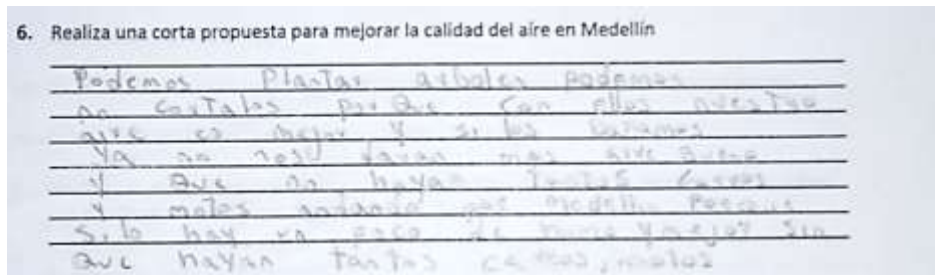 6. Realiza una corta propuesta para mejorar la calidad del aire en Medellín
Podemos Plantar arboles podemos
no cortalos porque con ellos nuestro
aire es mejor y si los
ya no aire bueno
y que no hayan tantos carros
y motos andando por medellin Porque
si lo hay un poco de humo y mejor sin
que hayan tantos carros, motos